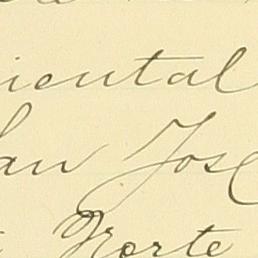 iental
an Jose
Norte